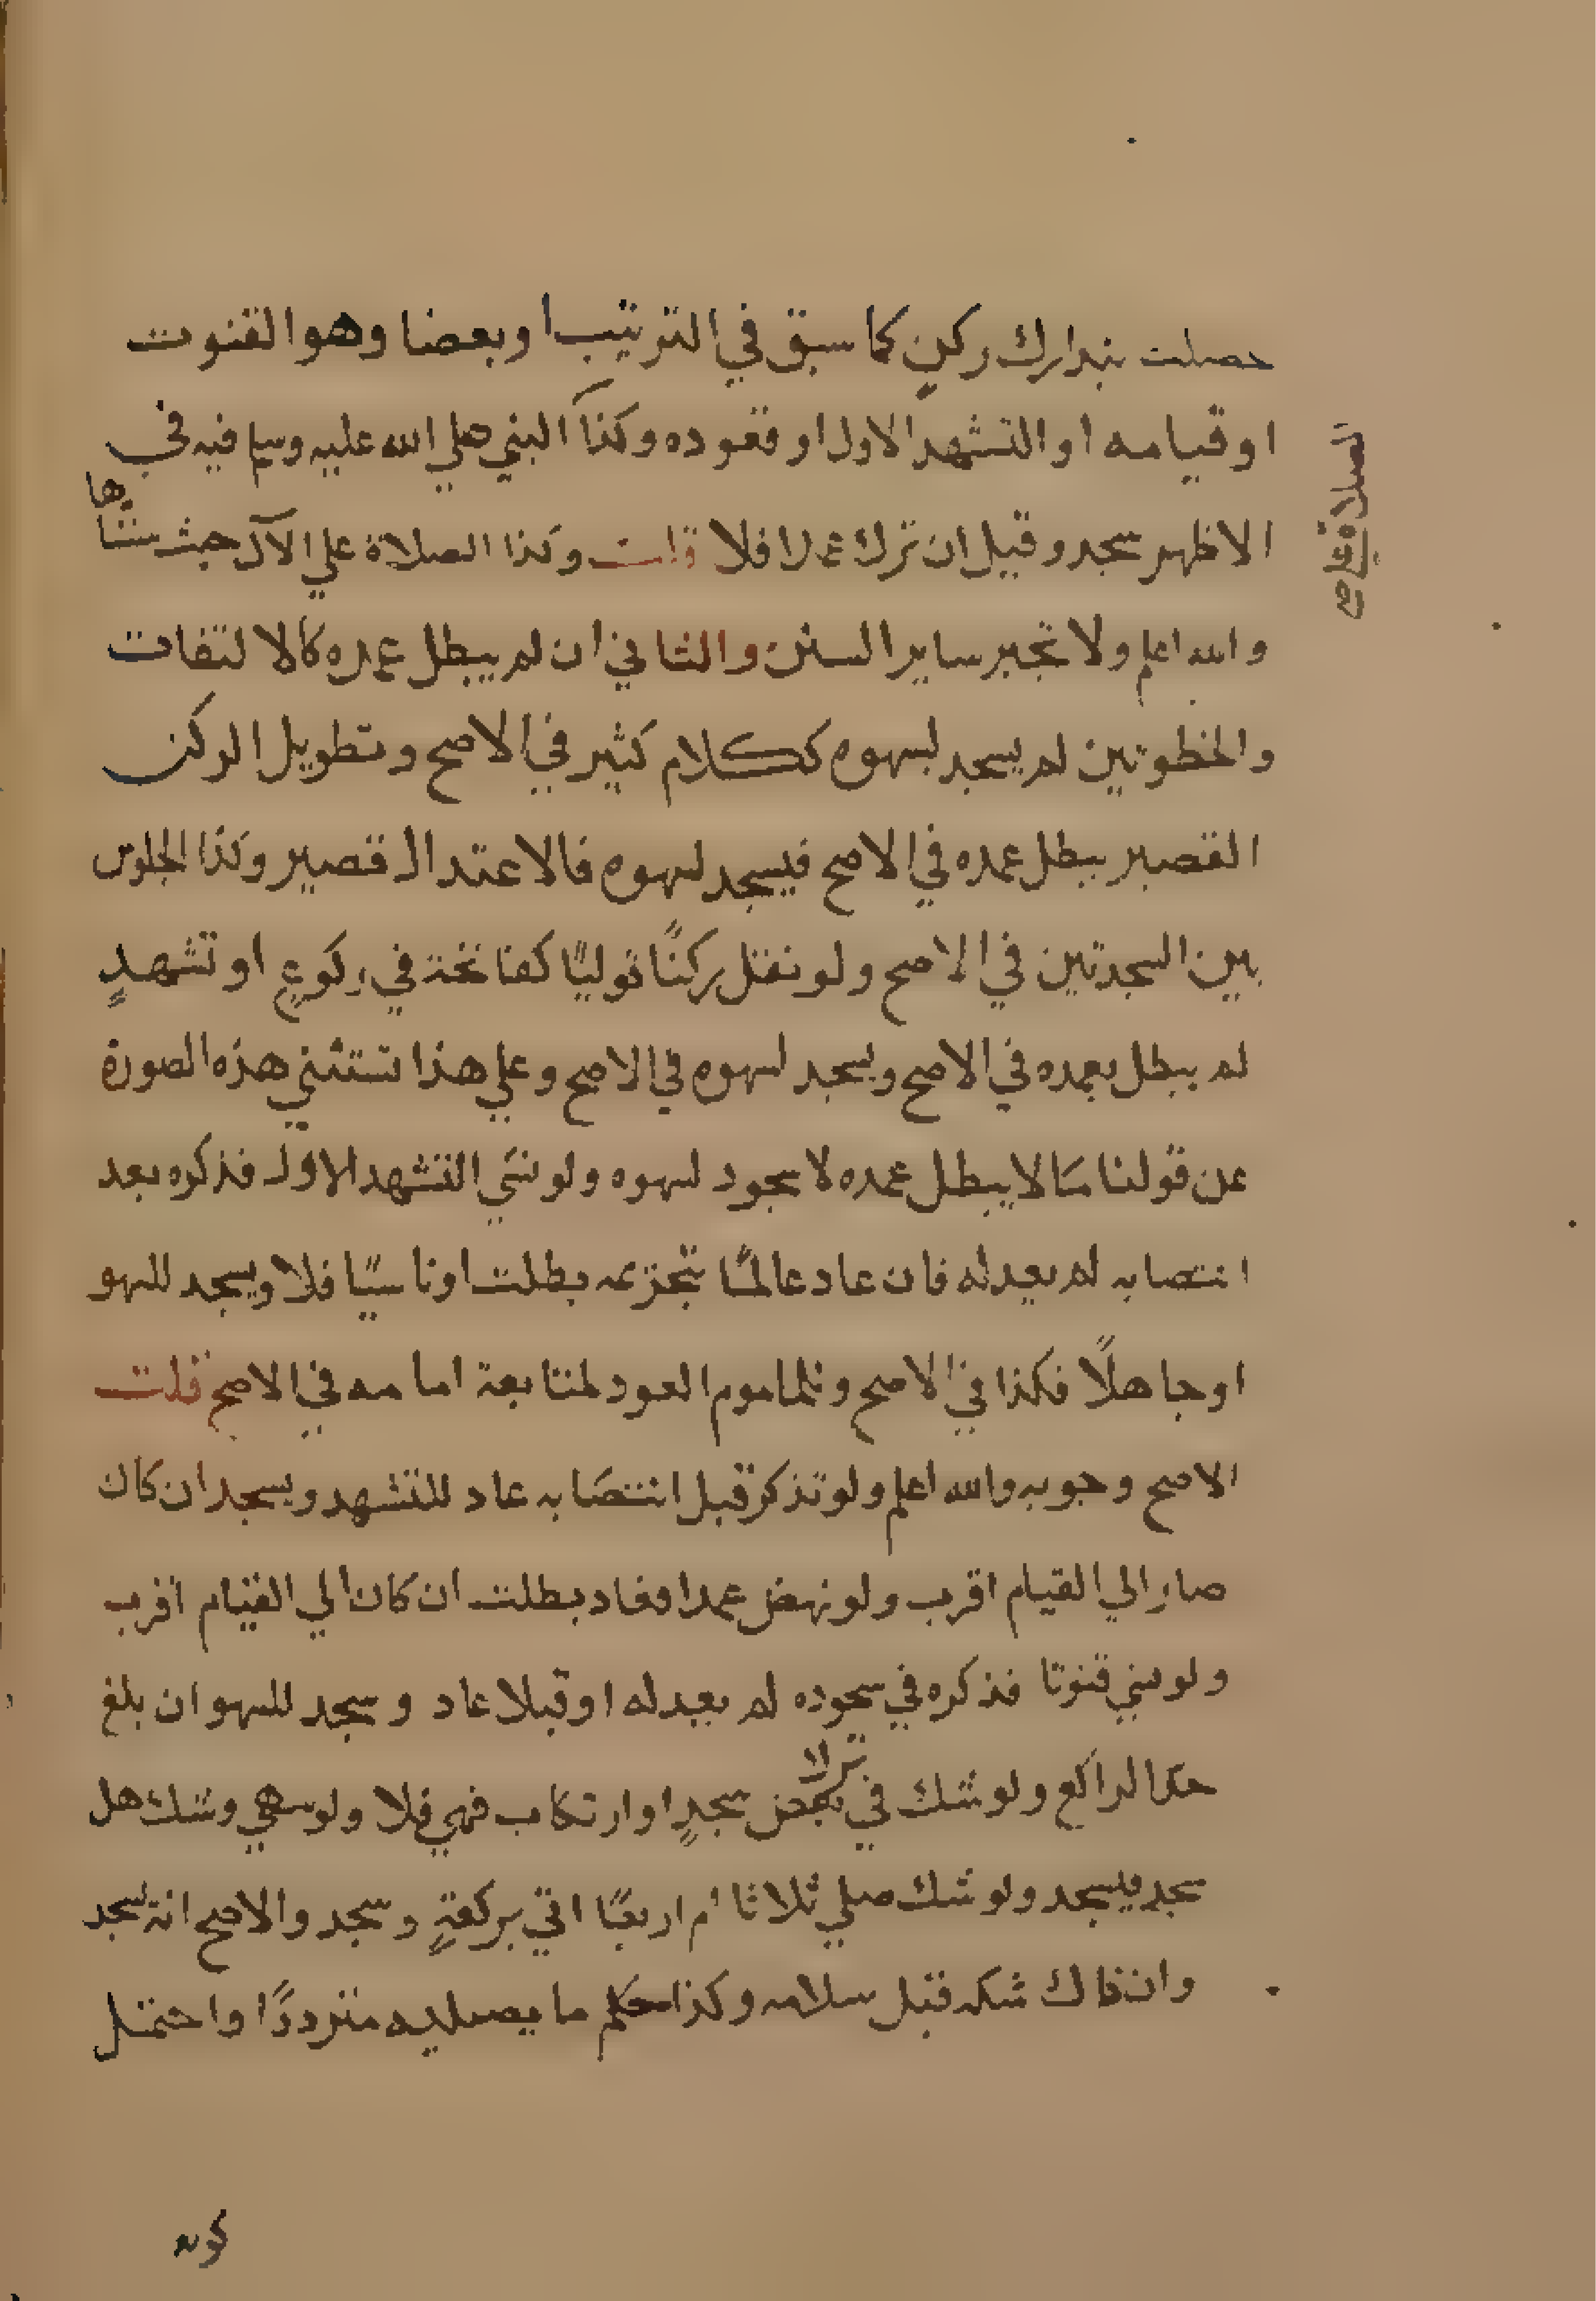 حصلت بتدارك ركن كما سبق في الترتيب او بعضا وهو القنوت
او قيامه او التشهد الاول او قعوده وكذا النبي صلي الله عليه وسلم فيه في
الاظهر سجد وقيل ان ترك عمدا فلا قلت وكذا الصلاة علي الآل حيث سنناها
الصلاة علي صح
والله اعلم ولا تجبر ساير السنن والثاني ان لم يبطل عمده كالالتفات
والخطوتين لم يسجد لسهوه ككلام كثير في الاصح وتطويل الركن
القصير يبطل عمده في الاصح فيسجد لسهوه فالاعتدال قصير وكذا الجلوس
بين السجدتين في الاصح ولو نقل ركنًا قوليًا كفاتحة في ركوعٍ او تشهدٍ
لم يبطل بعمده في الاصح ويسجد لسهوه في الاصح وعلي هذا تستثني هذه الصورة
عن قولنا مَا لا يبطل عمده لا سجود لسهوه ولو نسي التشهد الاول فذكره بعد
انتصابه لم يعد له فان عاد عالمًا بتحريمه بطلت او ناسيًا فلا ويسجد للسهو
او جاهلًا فكذا في الاصح وللماموم العود لمتابعة امامه في الاصح قلت
الاصح وجوبه والله اعلم ولو تذكر قبل انتصَابه عاد للتشهد ويسجد ان كان
صار الي القيام اقرب ولو نهض عمدا فعاد بطلت ان كان الي القيام اقرب
ولو نسي قنوتا فذكره في سجوده لم يعد له او قبلا عاد وسجد للسهو ان بلغ
حد الراكع ولو شك في ترك بعض سجدٍ او ارتكاب فهي فلا ولو سهي وشك هل
سجد فيسجد ولو شك صلي ثلاثا ام اربعًا اتي بركعةٍ وسجد والاصح انه يسجد
وان زال شكه قبل سلامه وكذا حكم ما يصليه مترددًا واحتمل
كونه